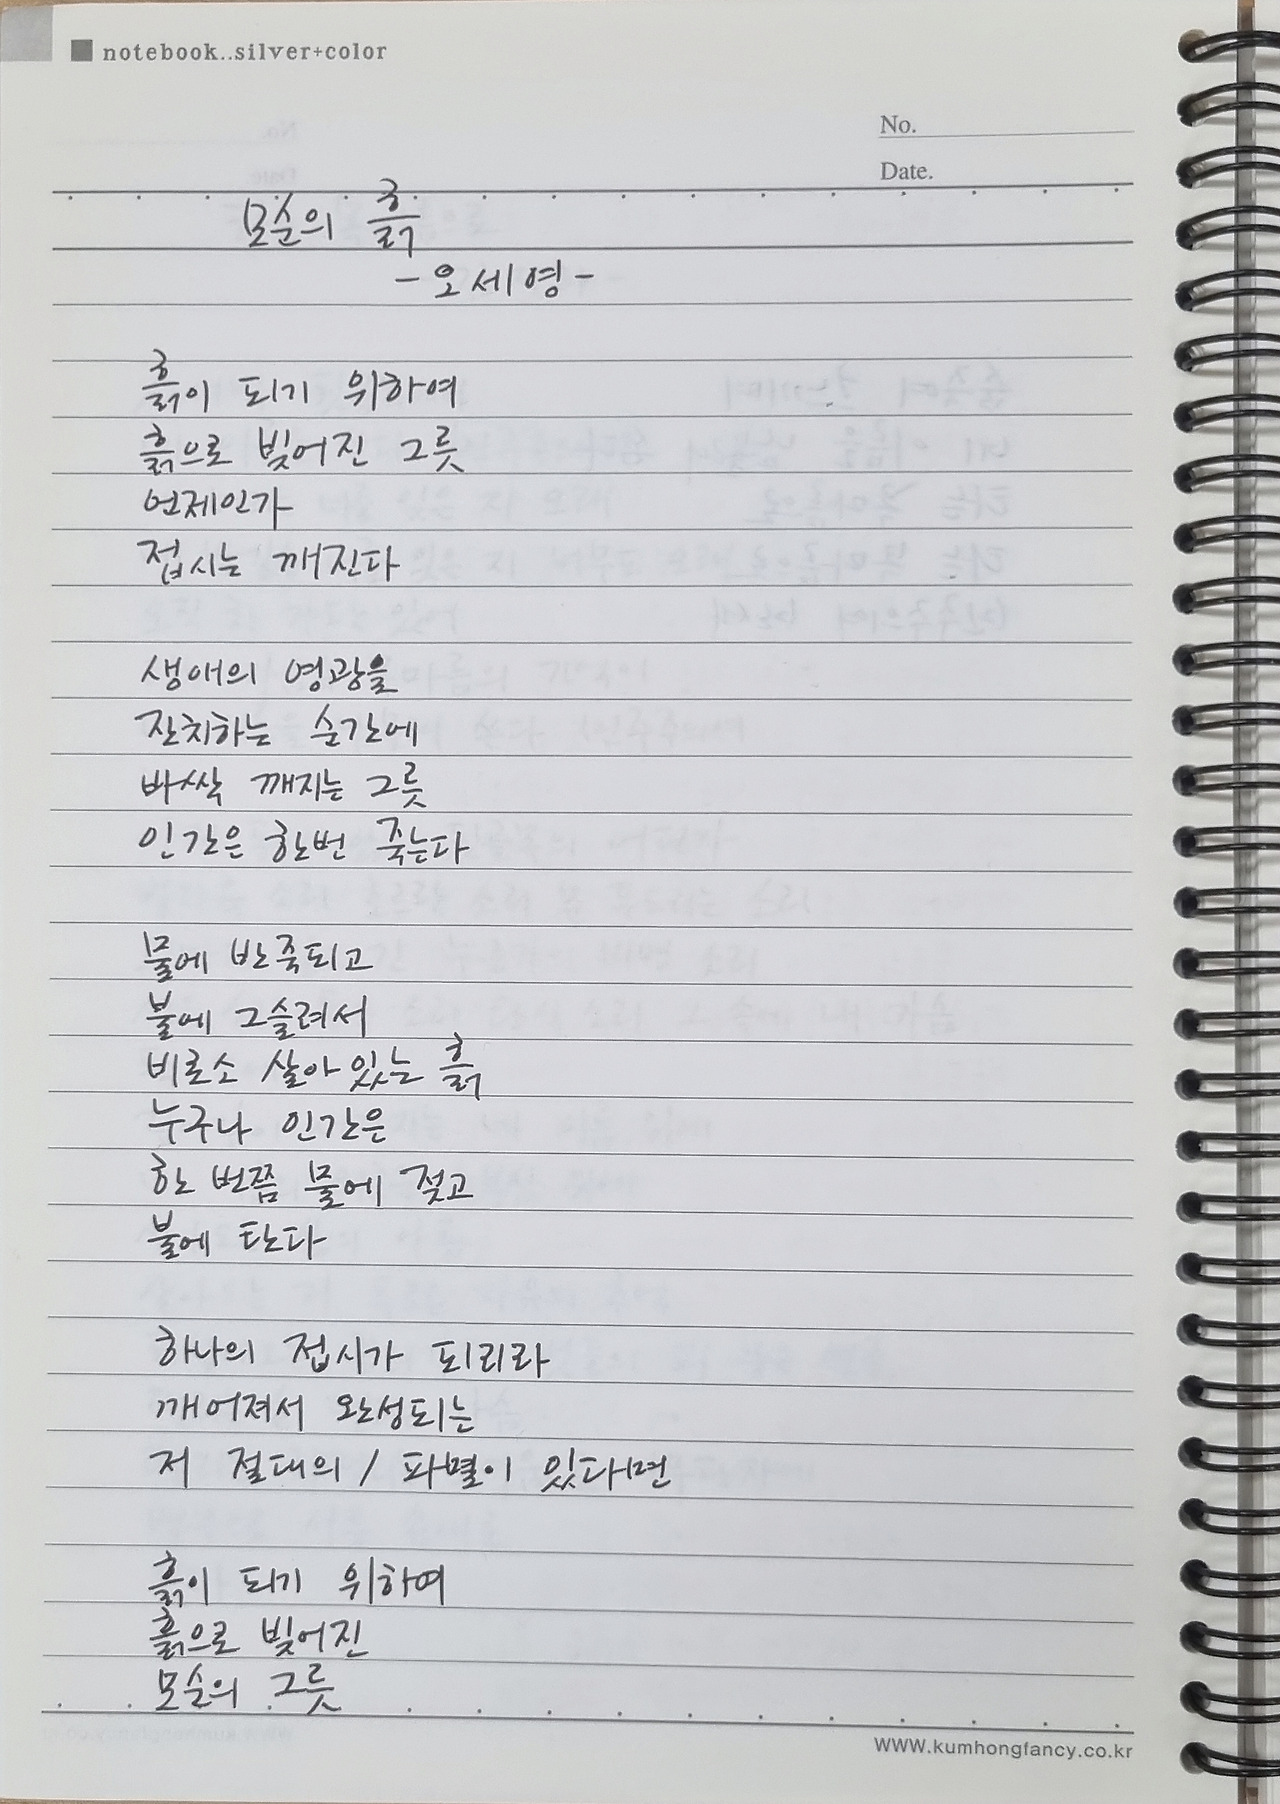 notebook..silver+color
No.
Date.
모순의 흙
-오세영-
흙이 되기 위하여
흙으로 빚어진 그릇
언제인가
접시는 깨진다
생애의 영광을
잔치하는 순간에
바싹 깨지는 그릇
인간은 한번 죽는다
물에 반죽되고
불에 그슬려서
비로소 살아있는 흙
누구나 인간은
한 번쯤 물에 젖고
불에 탄다
하나의 접시가 되리라
깨어져서 완성되는
저 절대의 / 파멸이 있다면
흙이 되기 위하여
흙으로 빚어진
모순의 그릇
WWW.kumhongfancy.co.kr